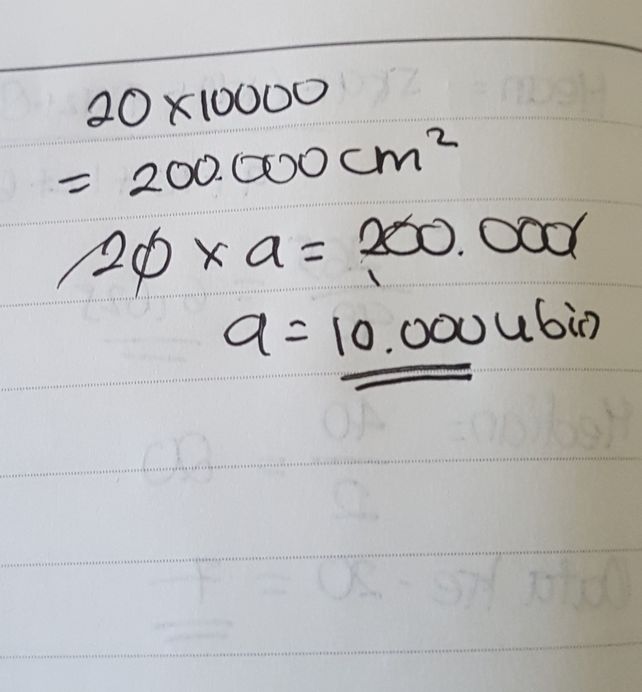 20 x 10000
= 200.000 cm²
20 x a = 200.000
a = 10.000 ubin